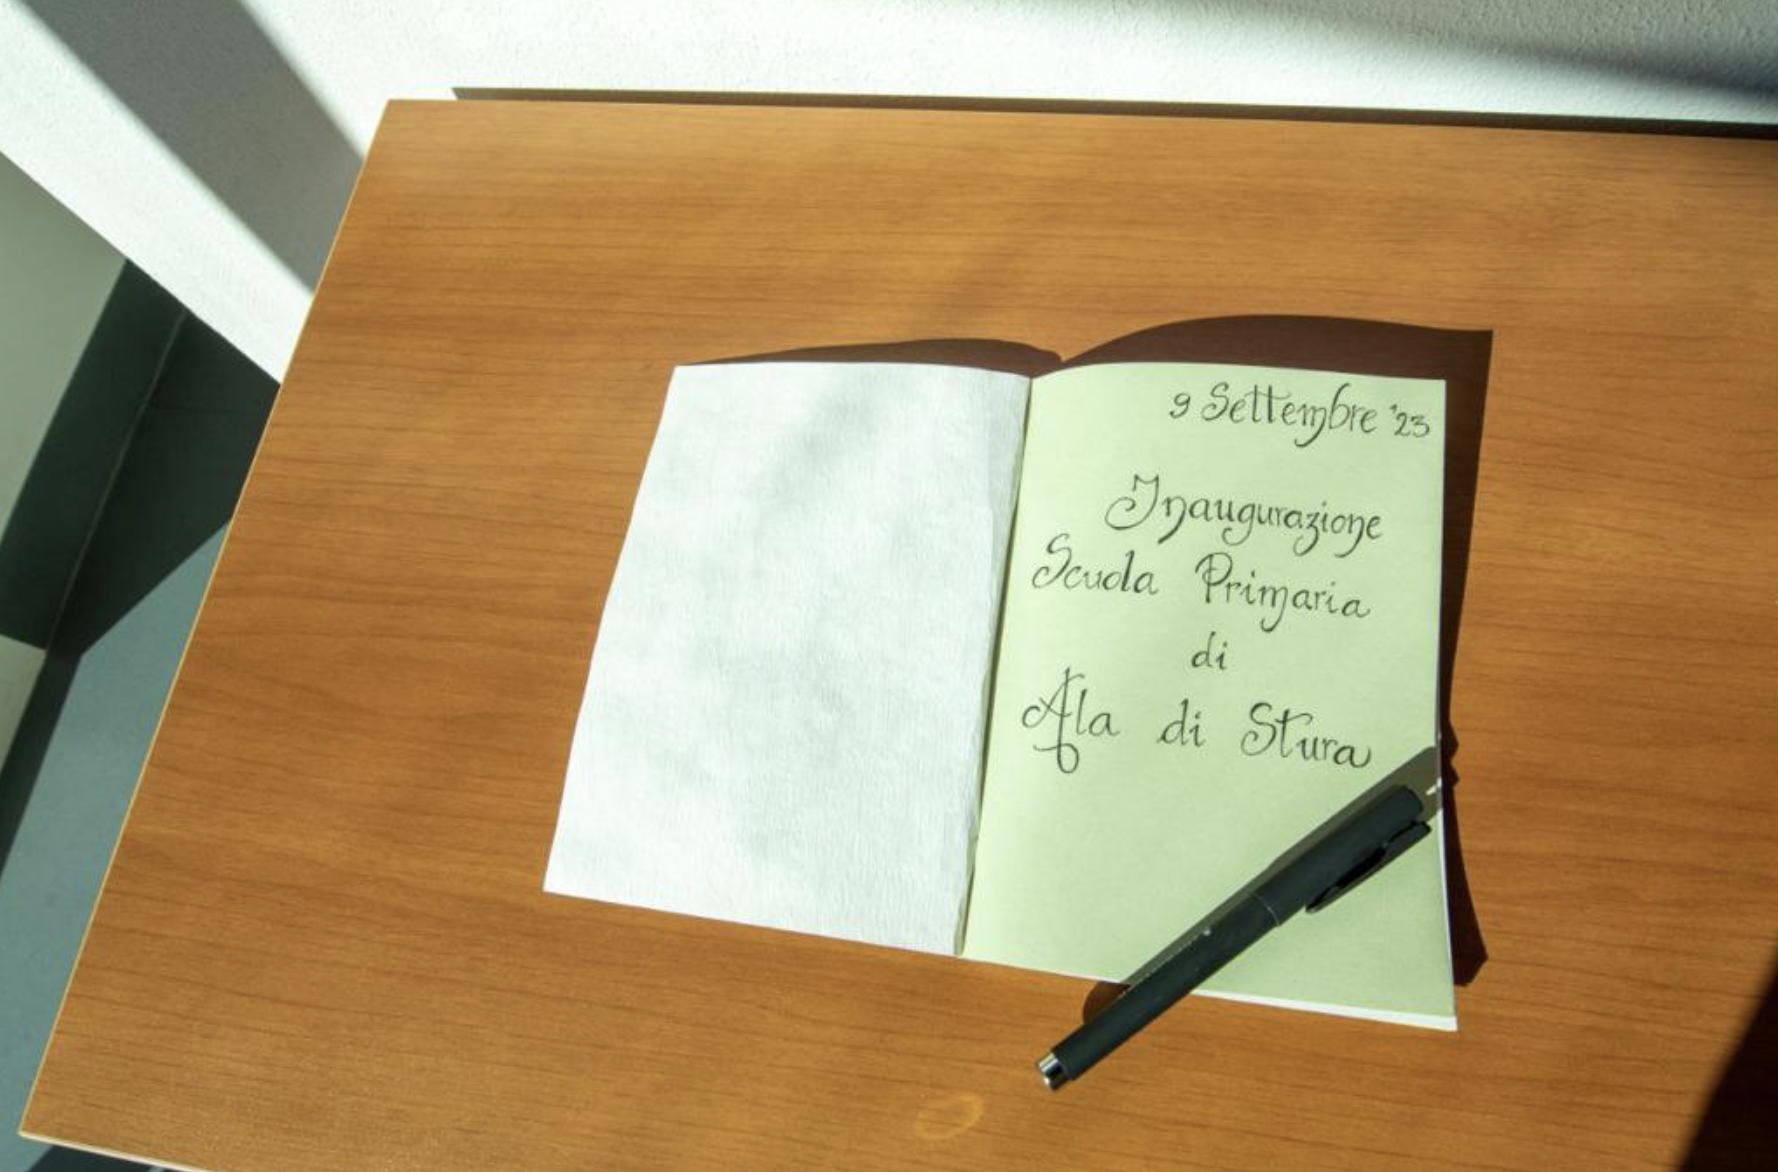 9 Settembre '23
Inaugurazione
Scuola Primaria
di
Ala di Stura